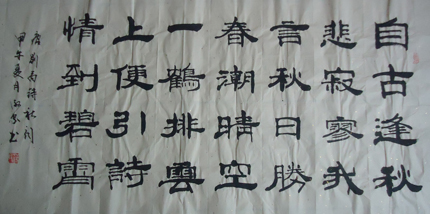 自古逢秋
悲寂寥我
言秋日勝
春潮晴空
一鶴排雲
上便引詩
情到碧霄
唐刘禹
甲午夏月 书